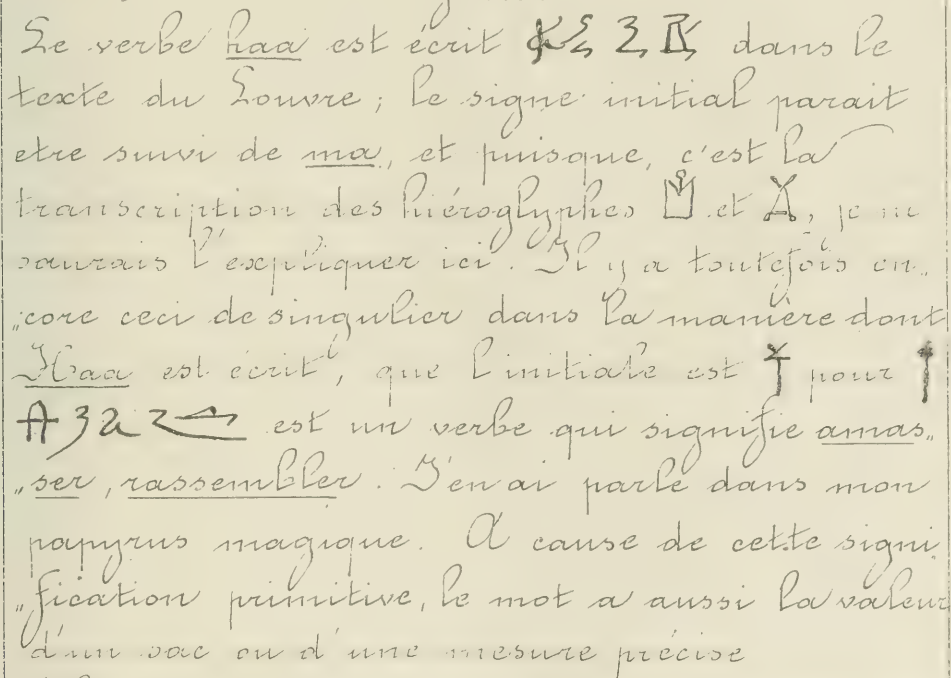 Le verbe haa est écrit dans le
texte du Louvre; le signe initial parait
etre suivi de ma, et puisque, c'est la
transcription des hiéroglyphes et , je ne
saurais l'expliquer ici. Il y a toutefois en„
„core ceci de singulier dans la manière dont
Haa est écrit, que l'initiale est pour
est un verbe qui signifie amas„
„ser, rassembler. J'en ai parlé dans mon
papyrus magique. A cause de cette signi„
„fication primitive, le mot a aussi la valeur
d'un sac ou d'une mesure précise